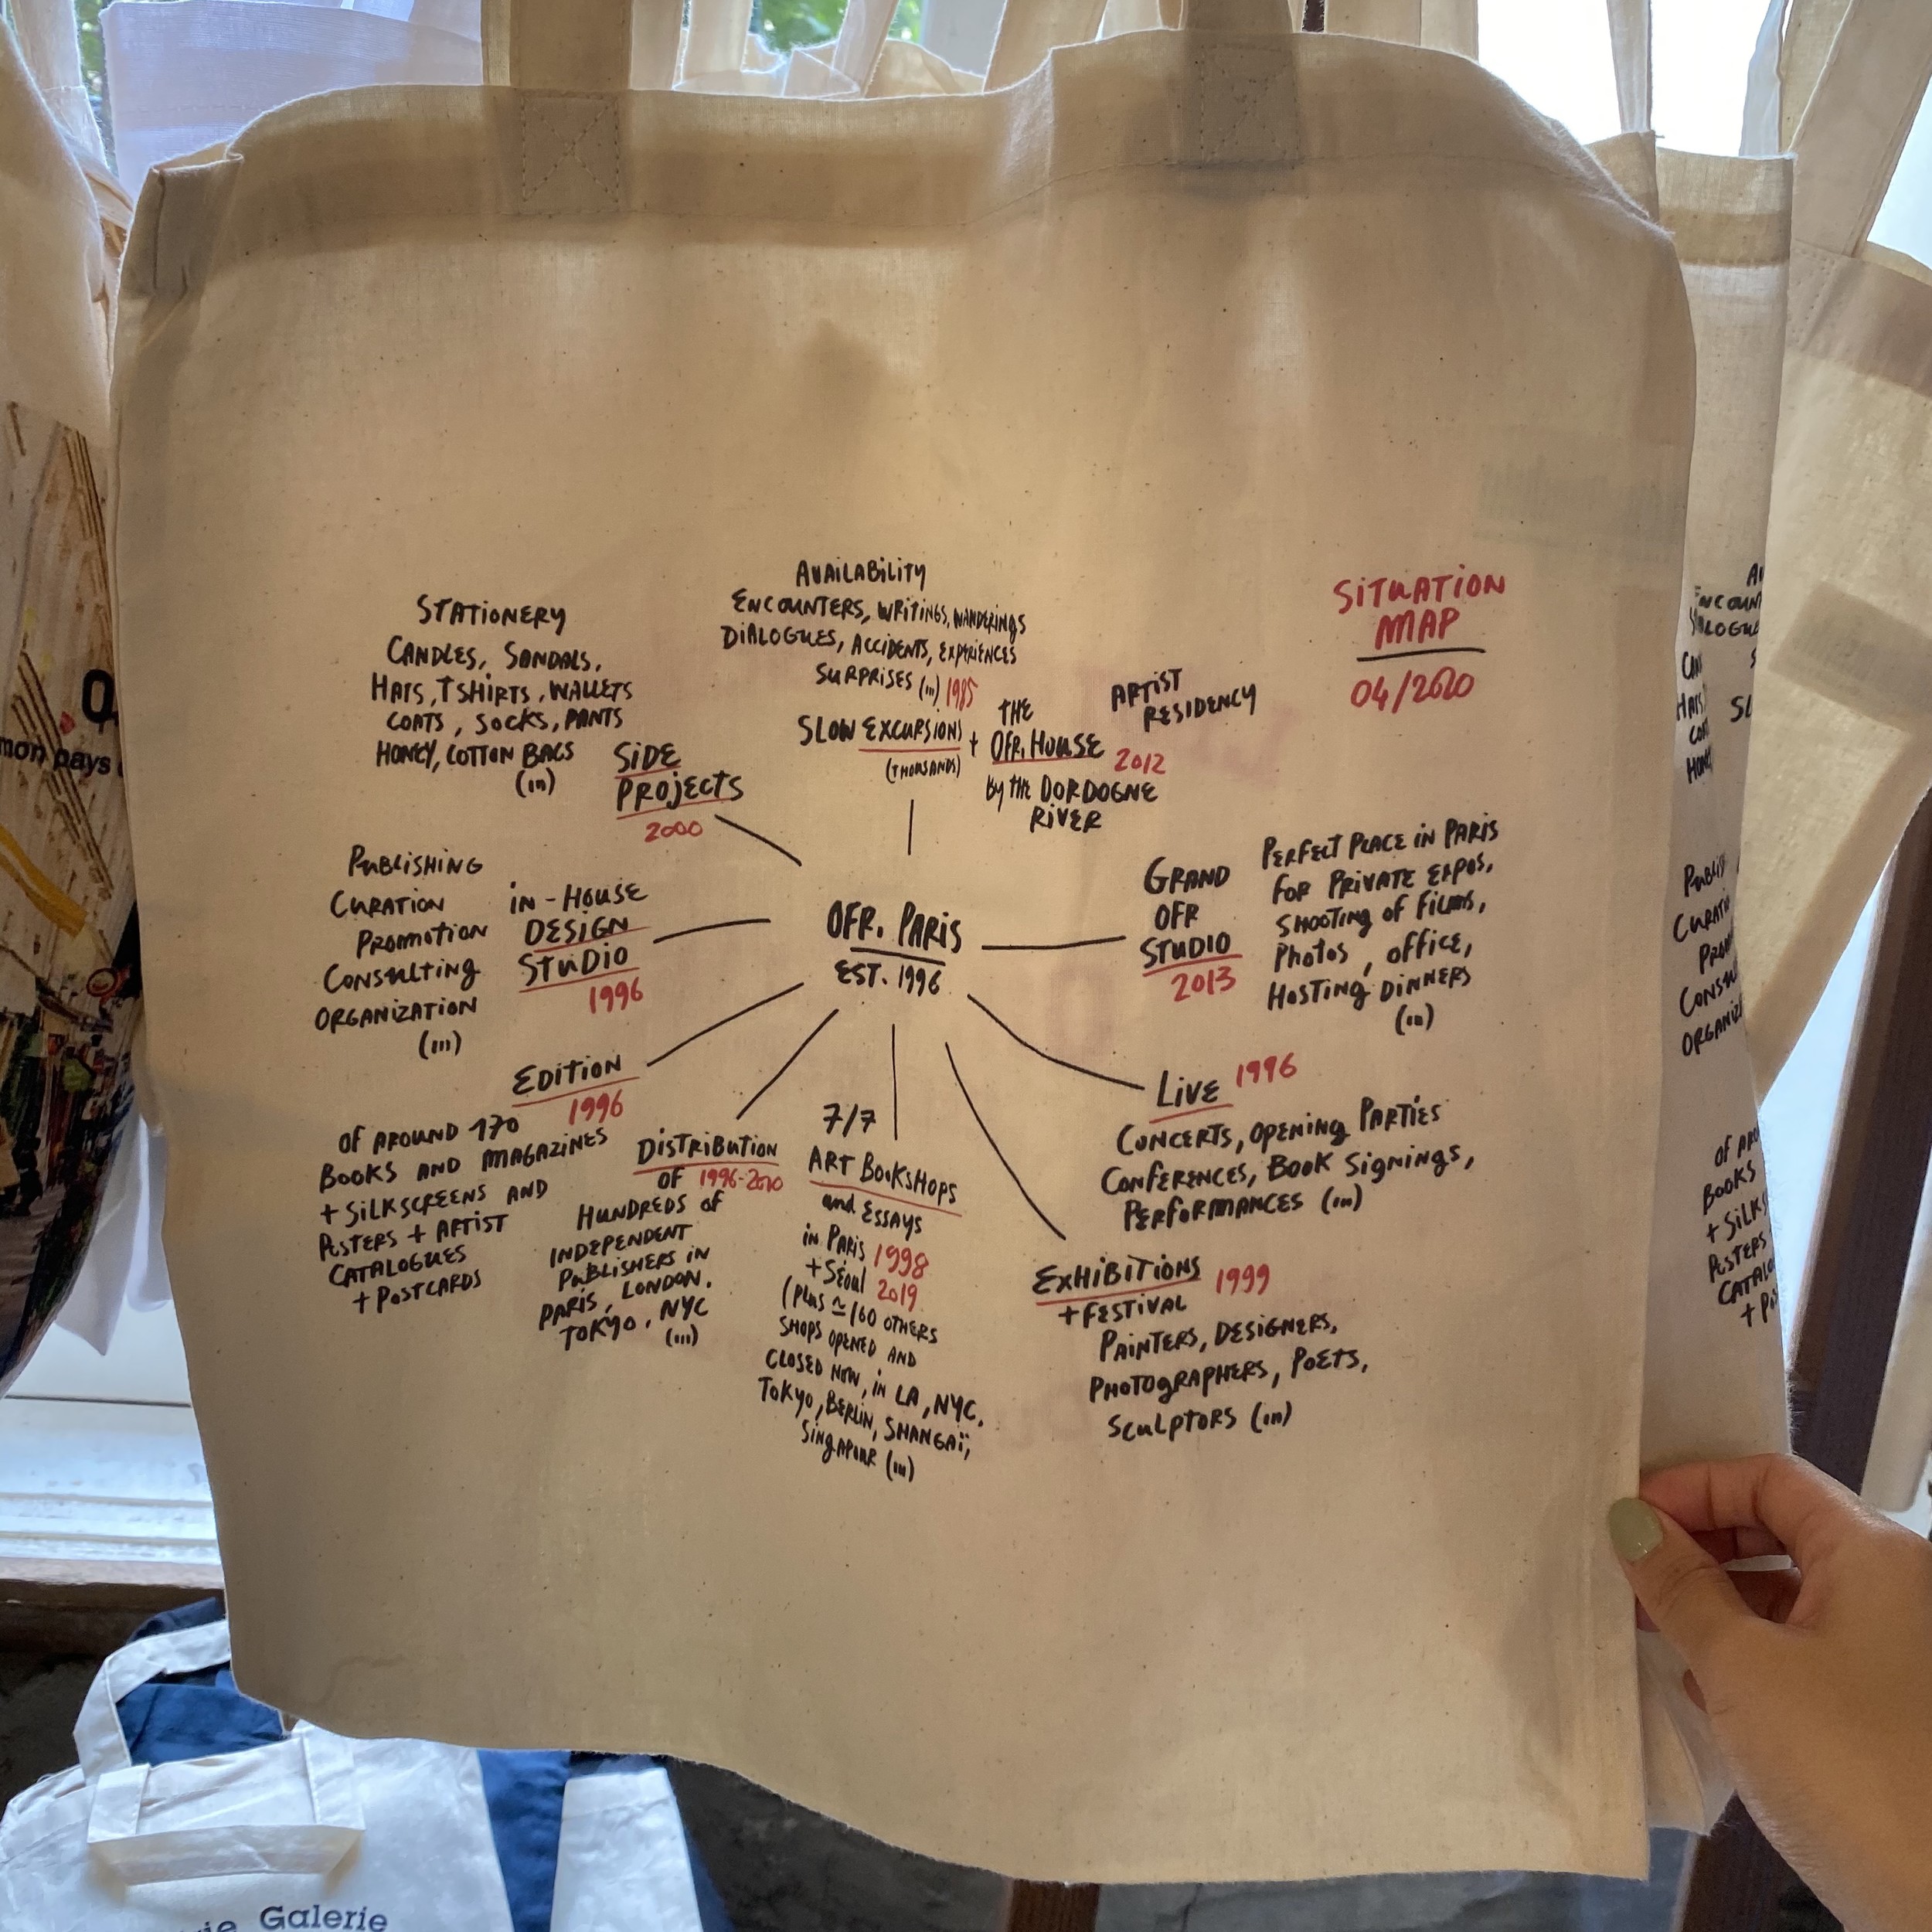 SITUATION
MAP
04/2020
STATIONERY
CANDLES, SANDALS,
HATS, TSHIRTS, WALLETS
COATS, SOCKS, PANTS
HONEY, COTTON BAGS
(...)
SIDE
PROJECTS
2000
AVAILABILITY
ENCOUNTERS, WRITINGS, WANDERINGS
DIALOGUES, ACCIDENTS, EXPERIENCES
SURPRISES (...) 1985
SLOW EXCURSIONS +
(THOUSANDS)
THE
OFR. HOUSE
2012
BY THE DORDOGNE
RIVER
ARTIST
RESIDENCY
PUBLISHING
CURATION
PROMOTION
CONSULTING
ORGANIZATION
(...)
IN-HOUSE
DESIGN
STUDIO
1996
OFR. PARIS
EST. 1996
GRAND
OFR
STUDIO
2013
PERFECT PLACE IN PARIS
FOR PRIVATE EXPOS,
SHOOTING OF FILMS,
PHOTOS, OFFICE,
HOSTING DINNERS
(...)
EDITION
1996
OF AROUND 170
BOOKS AND MAGAZINES
+ SILKSCREENS AND
POSTERS + ARTIST
CATALOGUES
+ POSTCARDS
DISTRIBUTION
OF 1996-2010
HUNDREDS OF
INDEPENDENT
PUBLISHERS IN
PARIS, LONDON,
TOKYO, NYC
(...)
7/7
ART BOOKSHOPS
and ESSAYS
in PARIS 1998
+ SEOUL 2019
(PLUS ≃ 160 OTHERS
SHOPS OPENED AND
CLOSED NOW, in LA, NYC,
TOKYO, BERLIN, SHANGAÏ,
SINGAPOUR (...)
LIVE 1996
CONCERTS, OPENING PARTIES
CONFERENCES, BOOK SIGNINGS,
PERFORMANCES (...)
EXHIBITIONS 1999
+ FESTIVAL
PAINTERS, DESIGNERS,
PHOTOGRAPHERS, POETS,
SCULPTORS (...)
mon pays
Galerie